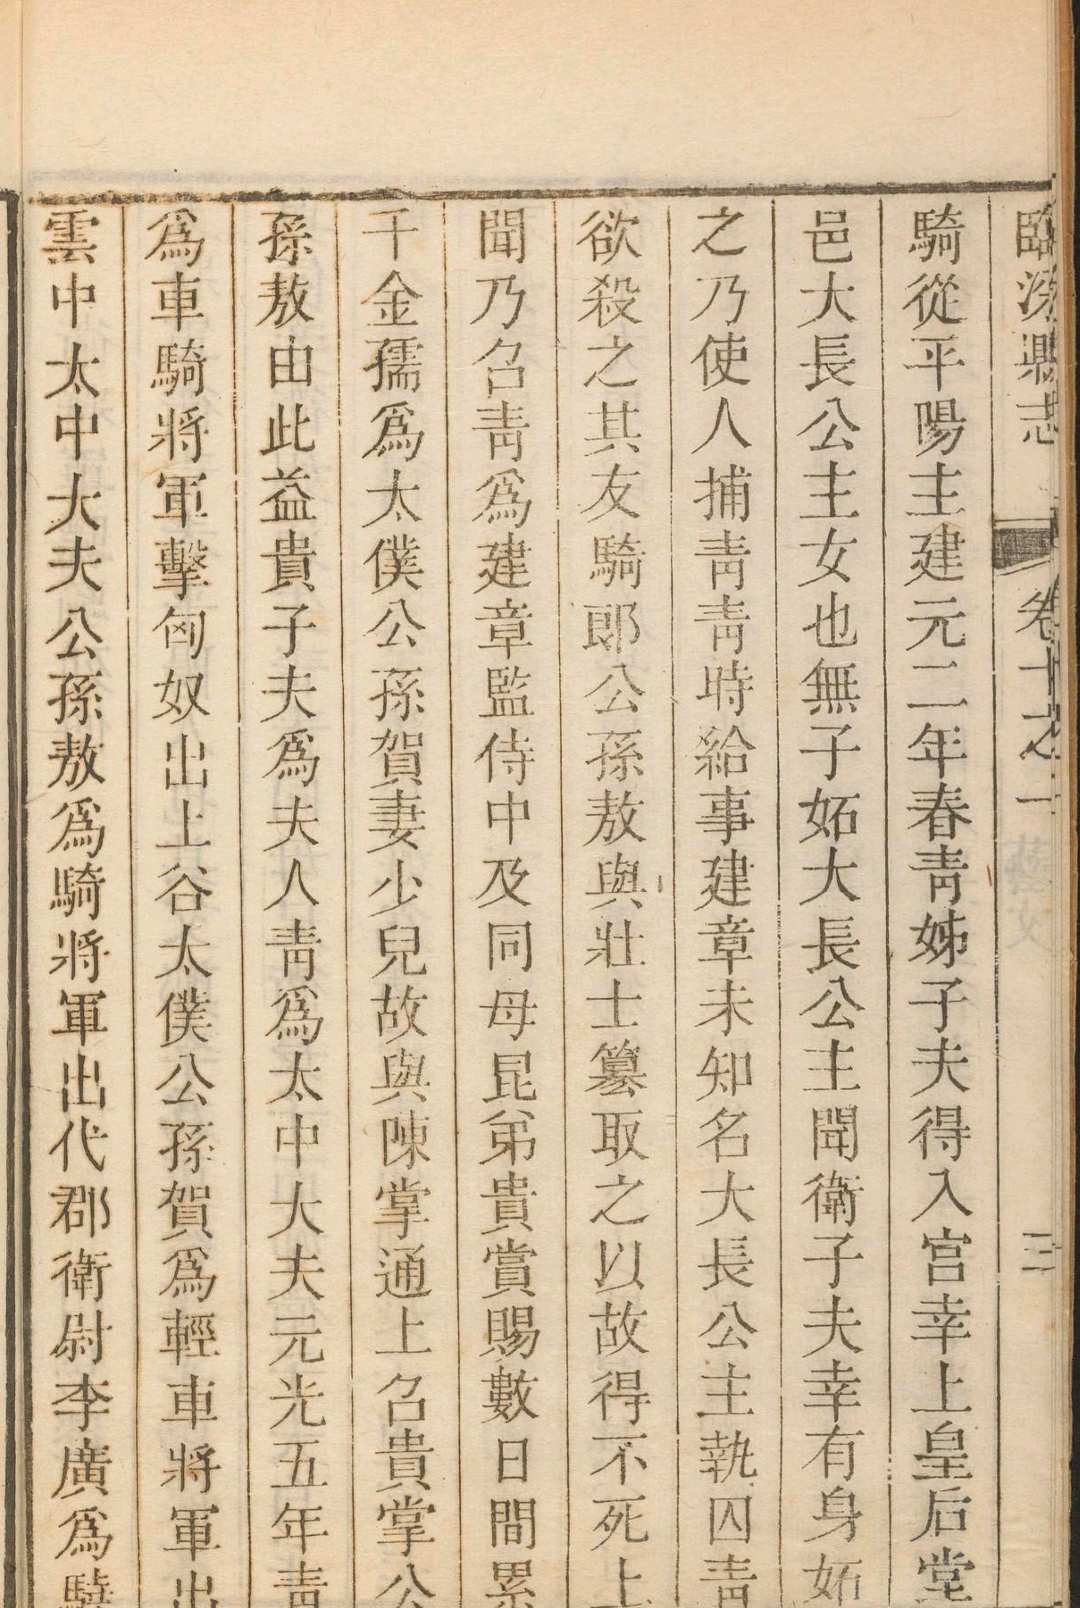 臨汾縣志 卷十之一 三
騎從平陽主建元二年春靑姊子夫得入宮幸上皇后堂
邑大長公主女也無子妬大長公主聞衛子夫幸有身妬
之乃使人捕靑靑時給事建章未知名大長公主執囚靑
欲殺之其友騎郎公孫敖與壯士簒取之以故得不死上
聞乃召靑爲建章監侍中及同母昆弟貴賞賜數日間累
千金孺爲太僕公孫賀妻少兒故與陳掌通上召貴掌公
孫敖由此益貴子夫爲夫人靑爲太中大夫元光五年靑
爲車騎將軍擊匈奴出上谷太僕公孫賀爲輕車將軍出
雲中太中大夫公孫敖爲騎將軍出代郡衛尉李廣爲驍